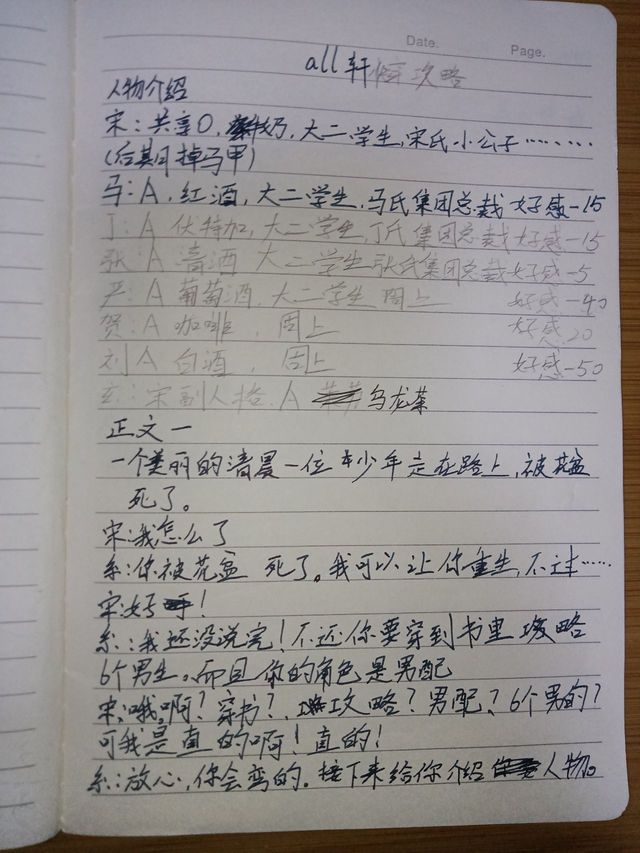 Date.
Page.
all轩 攻略
人物介绍
宋：共享O，奶，大二学生，宋氏小公子………
(后期掉马甲)
马：A，红酒，大二学生，马氏集团总裁 好感-15
丁：A 伏特加，大二学生，丁氏集团总裁 好感-15
张：A 清酒 大二学生 张氏集团总裁 好感-5
严：A 葡萄酒，大二学生 同上 好感-40
贺：A 咖啡，同上 好感20
刘 A 白酒，同上 好感-50
玄：宋副人格，A 乌龙茶
正文一
一个美丽的清晨一位 少年走在路上，被花盆
死了。
宋：我怎么了
系：你被花盆 死了。我可以让你重生，不过……
宋：好！
系：我还没说完！不还你要穿到书里 攻略
6个男生。而且你的角色是男配
宋：哦。啊？穿书？攻略？男配？6个男的？
可我是直的啊！直的！
系：放心，你会弯的。接下来给你介绍 人物。